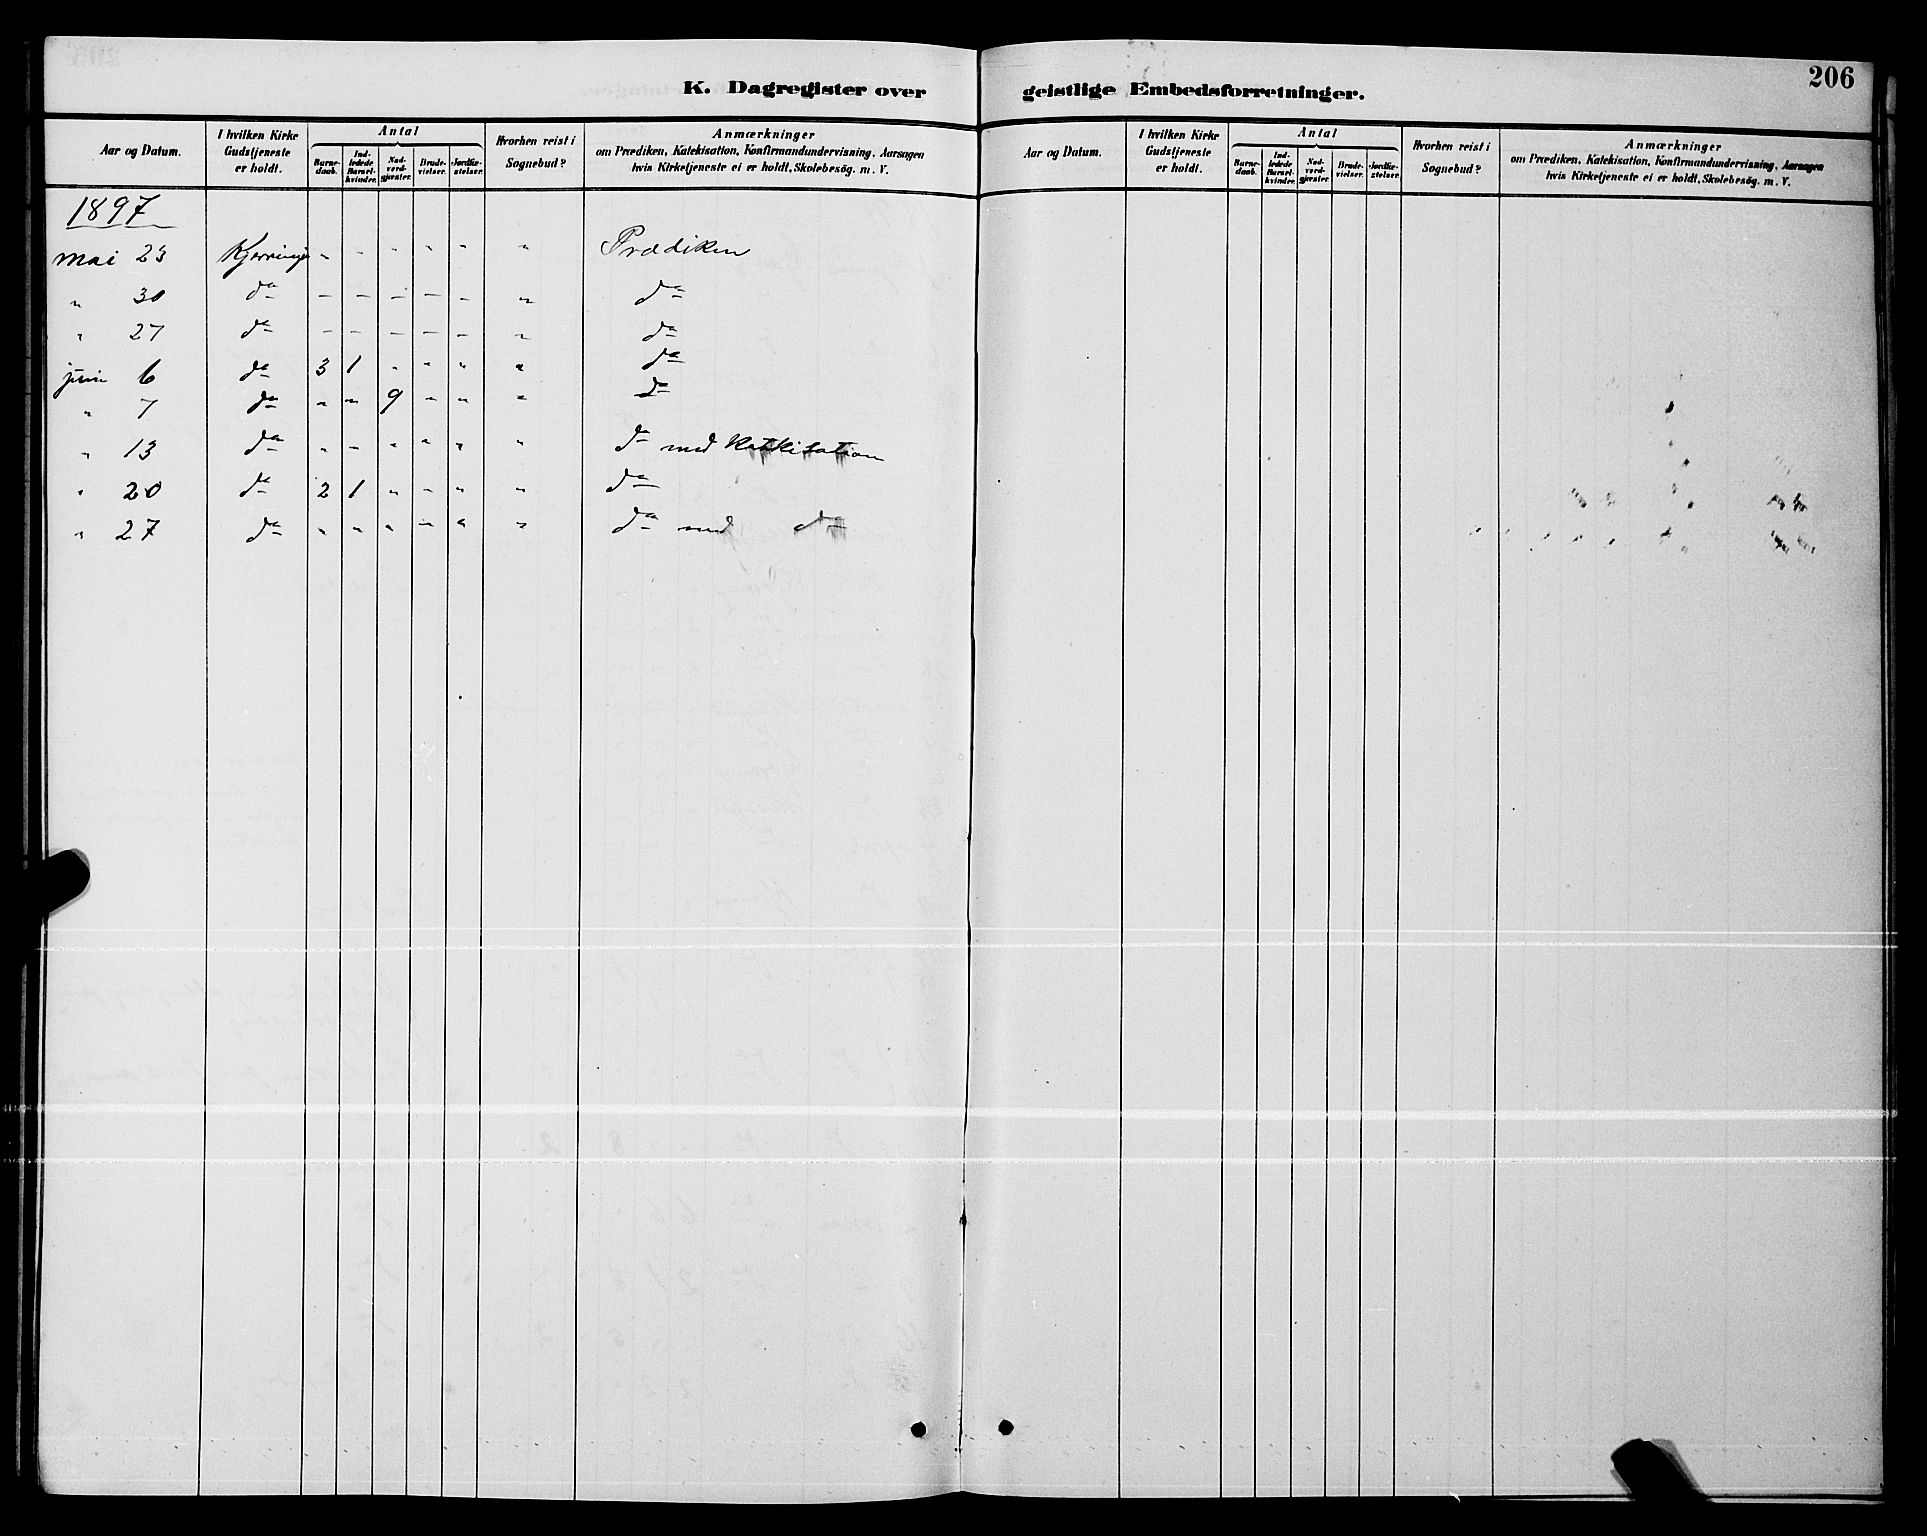 206
K. Dagregister over geistlige Embedsforretninger.
Aar og Datum. I hvilken Kirke Gudstjeneste er holdt. Antal Barnedaab. Indledede Barselkvinder. Nadverdgjæster. Brudevielser. Jordfæstelser. Hvorhen reist i Sognebud? Anmærkninger om Prædiken, Katekisation, Konfirmandundervisning, Aarsagen hvis Kirketjeneste ei er holdt, Skolebesög. m. V.
Aar og Datum. I hvilken Kirke Gudstjeneste er holdt. Antal Barnedaab. Indledede Barselkvinder. Nadverdgjæster. Brudevielser. Jordfæstelser. Hvorhen reist i Sognebud? Anmærkninger om Prædiken, Katekisation, Konfirmandundervisning, Aarsagen hvis Kirketjeneste ei er holdt, Skolebesög. m. V.
1897
mai 23 Kjerringø " " " " " " Prædiken
" 30 do – – – – – " do
" 27 do – – – – – " do
juni 6 do 3 1 " " " " do
" 7 do " " 9 " " " do
" 13 do " " " " " " do med Katkisation
" 20 do 2 1 " " " " do
" 27 do " " " " " " do med do